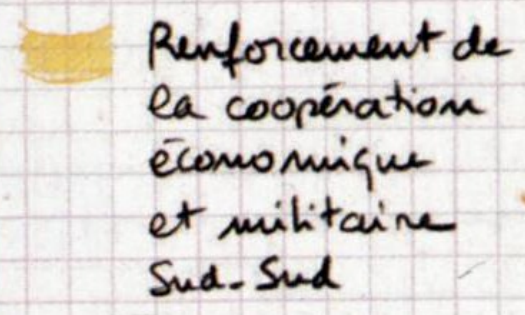 Renforcement de
la coopération
économique
et militaire
Sud-Sud